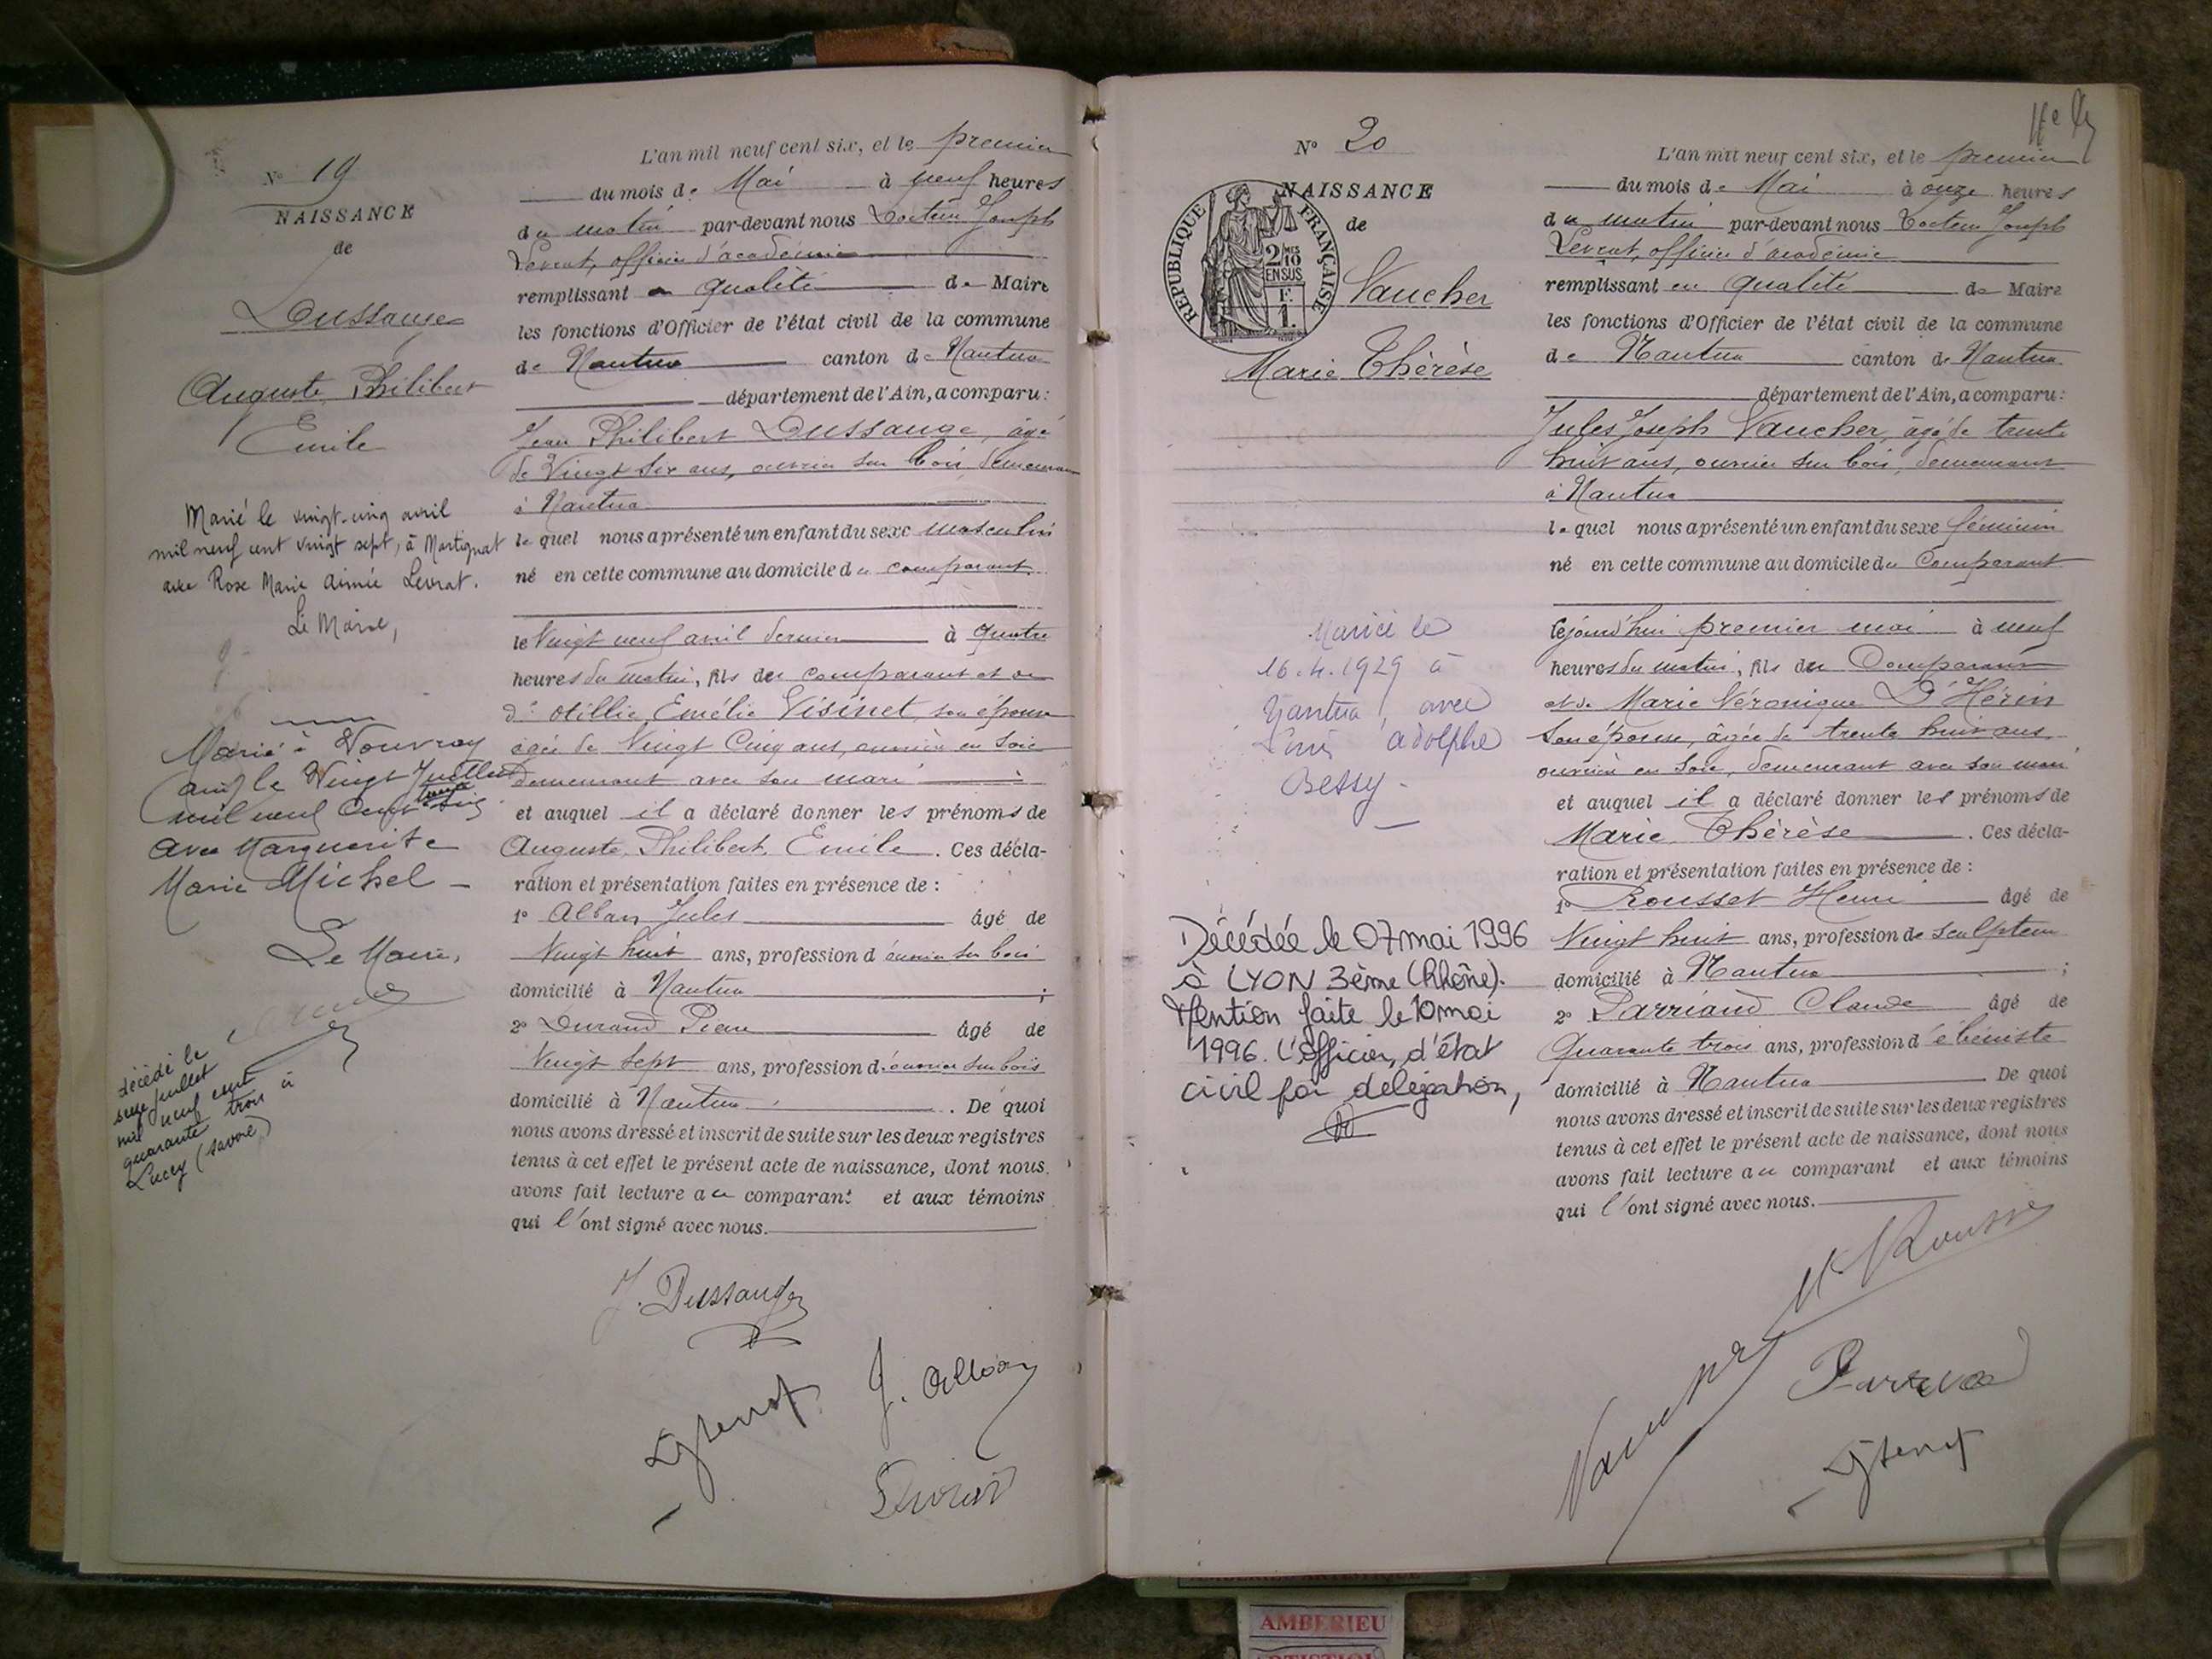 N° 19
NAISSANCE
de
Dussauge
Auguste Philibert
Emile
Marié le vingt-cinq avril
mil neuf cent vingt sept, à Martignat
avec Rose Marie Aimée Levrat.
Le Maire,
Marié à Vouvray
(Ain) le Vingt Juillet
mil neuf cent trente six
avec Marguerite
Marie Michel –
Le Maire,
décédé le
seize juillet
mil neuf cent
quarante trois à
Lucey (Savoie)
L'an mil neuf cent six, et le premier
du mois de Mai à neuf heures
du matin par-devant nous Docteur Joseph
Levrat, officier d'académie
remplissant en qualité de Maire
les fonctions d'Officier de l'état civil de la commune
de Nantua canton de Nantua
département de l'Ain, a comparu :
Jean Philibert Dussauge, âgé
de Vingt six ans, ouvrier sur bois, demeurant
à Nantua
lequel nous a présenté un enfant du sexe masculin
né en cette commune au domicile du comparant
le Vingt neuf avril dernier à quatre
heures du matin, fils du comparant et de
Otillie Emélie Visinet, son épouse
agée de Vingt Cinq ans, ouvrière en soie
demeurant avec son mari
et auquel il a déclaré donner les prénoms de
Auguste, Philibert, Emile. Ces décla-
ration et présentation faites en présence de :
1° Alban Jules âgé de
Vingt huit ans, profession d'ouvrier sur bois
domicilié à Nantua ;
2° Durand Pierre âgé de
Vingt sept ans, profession d'ouvrier sur bois
domicilié à Nantua. De quoi
nous avons dressé et inscrit de suite sur les deux registres
tenus à cet effet le présent acte de naissance, dont nous
avons fait lecture au comparant et aux témoins
qui l'ont signé avec nous.
J. Dussauge
J. Alban
Durand
N° 20
NAISSANCE
de
RÉPUBLIQUE FRANÇAISE
2/10 MES
EN SUS
F.
1.
Vaucher
Marie Thérèse
Mariée le
16.4.1929 à
Nantua, avec
Louis Adolphe
Bessy –
Décédée le 07 mai 1996
à LYON 3ème (Rhône).
Mention faite le 10 mai
1996. L'officier, d'état
civil par délégation,
L'an mil neuf cent six, et le premier
du mois de Mai à onze heures
du matin par-devant nous Docteur Joseph
Levrat, officier d'académie
remplissant en qualité de Maire
les fonctions d'Officier de l'état civil de la commune
de Nantua canton de Nantua
département de l'Ain, a comparu :
Jules Joseph Vaucher, âgé de trente
huit ans, ouvrier sur bois, demeurant
à Nantua
lequel nous a présenté un enfant du sexe féminin
né en cette commune au domicile du Comparant
lejourd'hui premier mai à neuf
heures du matin, fils du Comparant
et de Marie Véronique D'Hérin
son épouse, âgée de trente huit ans
ouvrière en soie, demeurant avec son mari
et auquel il a déclaré donner les prénoms de
Marie Thérèse. Ces décla-
ration et présentation faites en présence de :
1° Rousset Henri âgé de
Vingt huit ans, profession de sculpteur
domicilié à Nantua ;
2° Parriaud Claude âgé de
Quarante trois ans, profession d'ébéniste
domicilié à Nantua De quoi
nous avons dressé et inscrit de suite sur les deux registres
tenus à cet effet le présent acte de naissance, dont nous
avons fait lecture au comparant et aux témoins
qui l'ont signé avec nous.
AMBERIEU